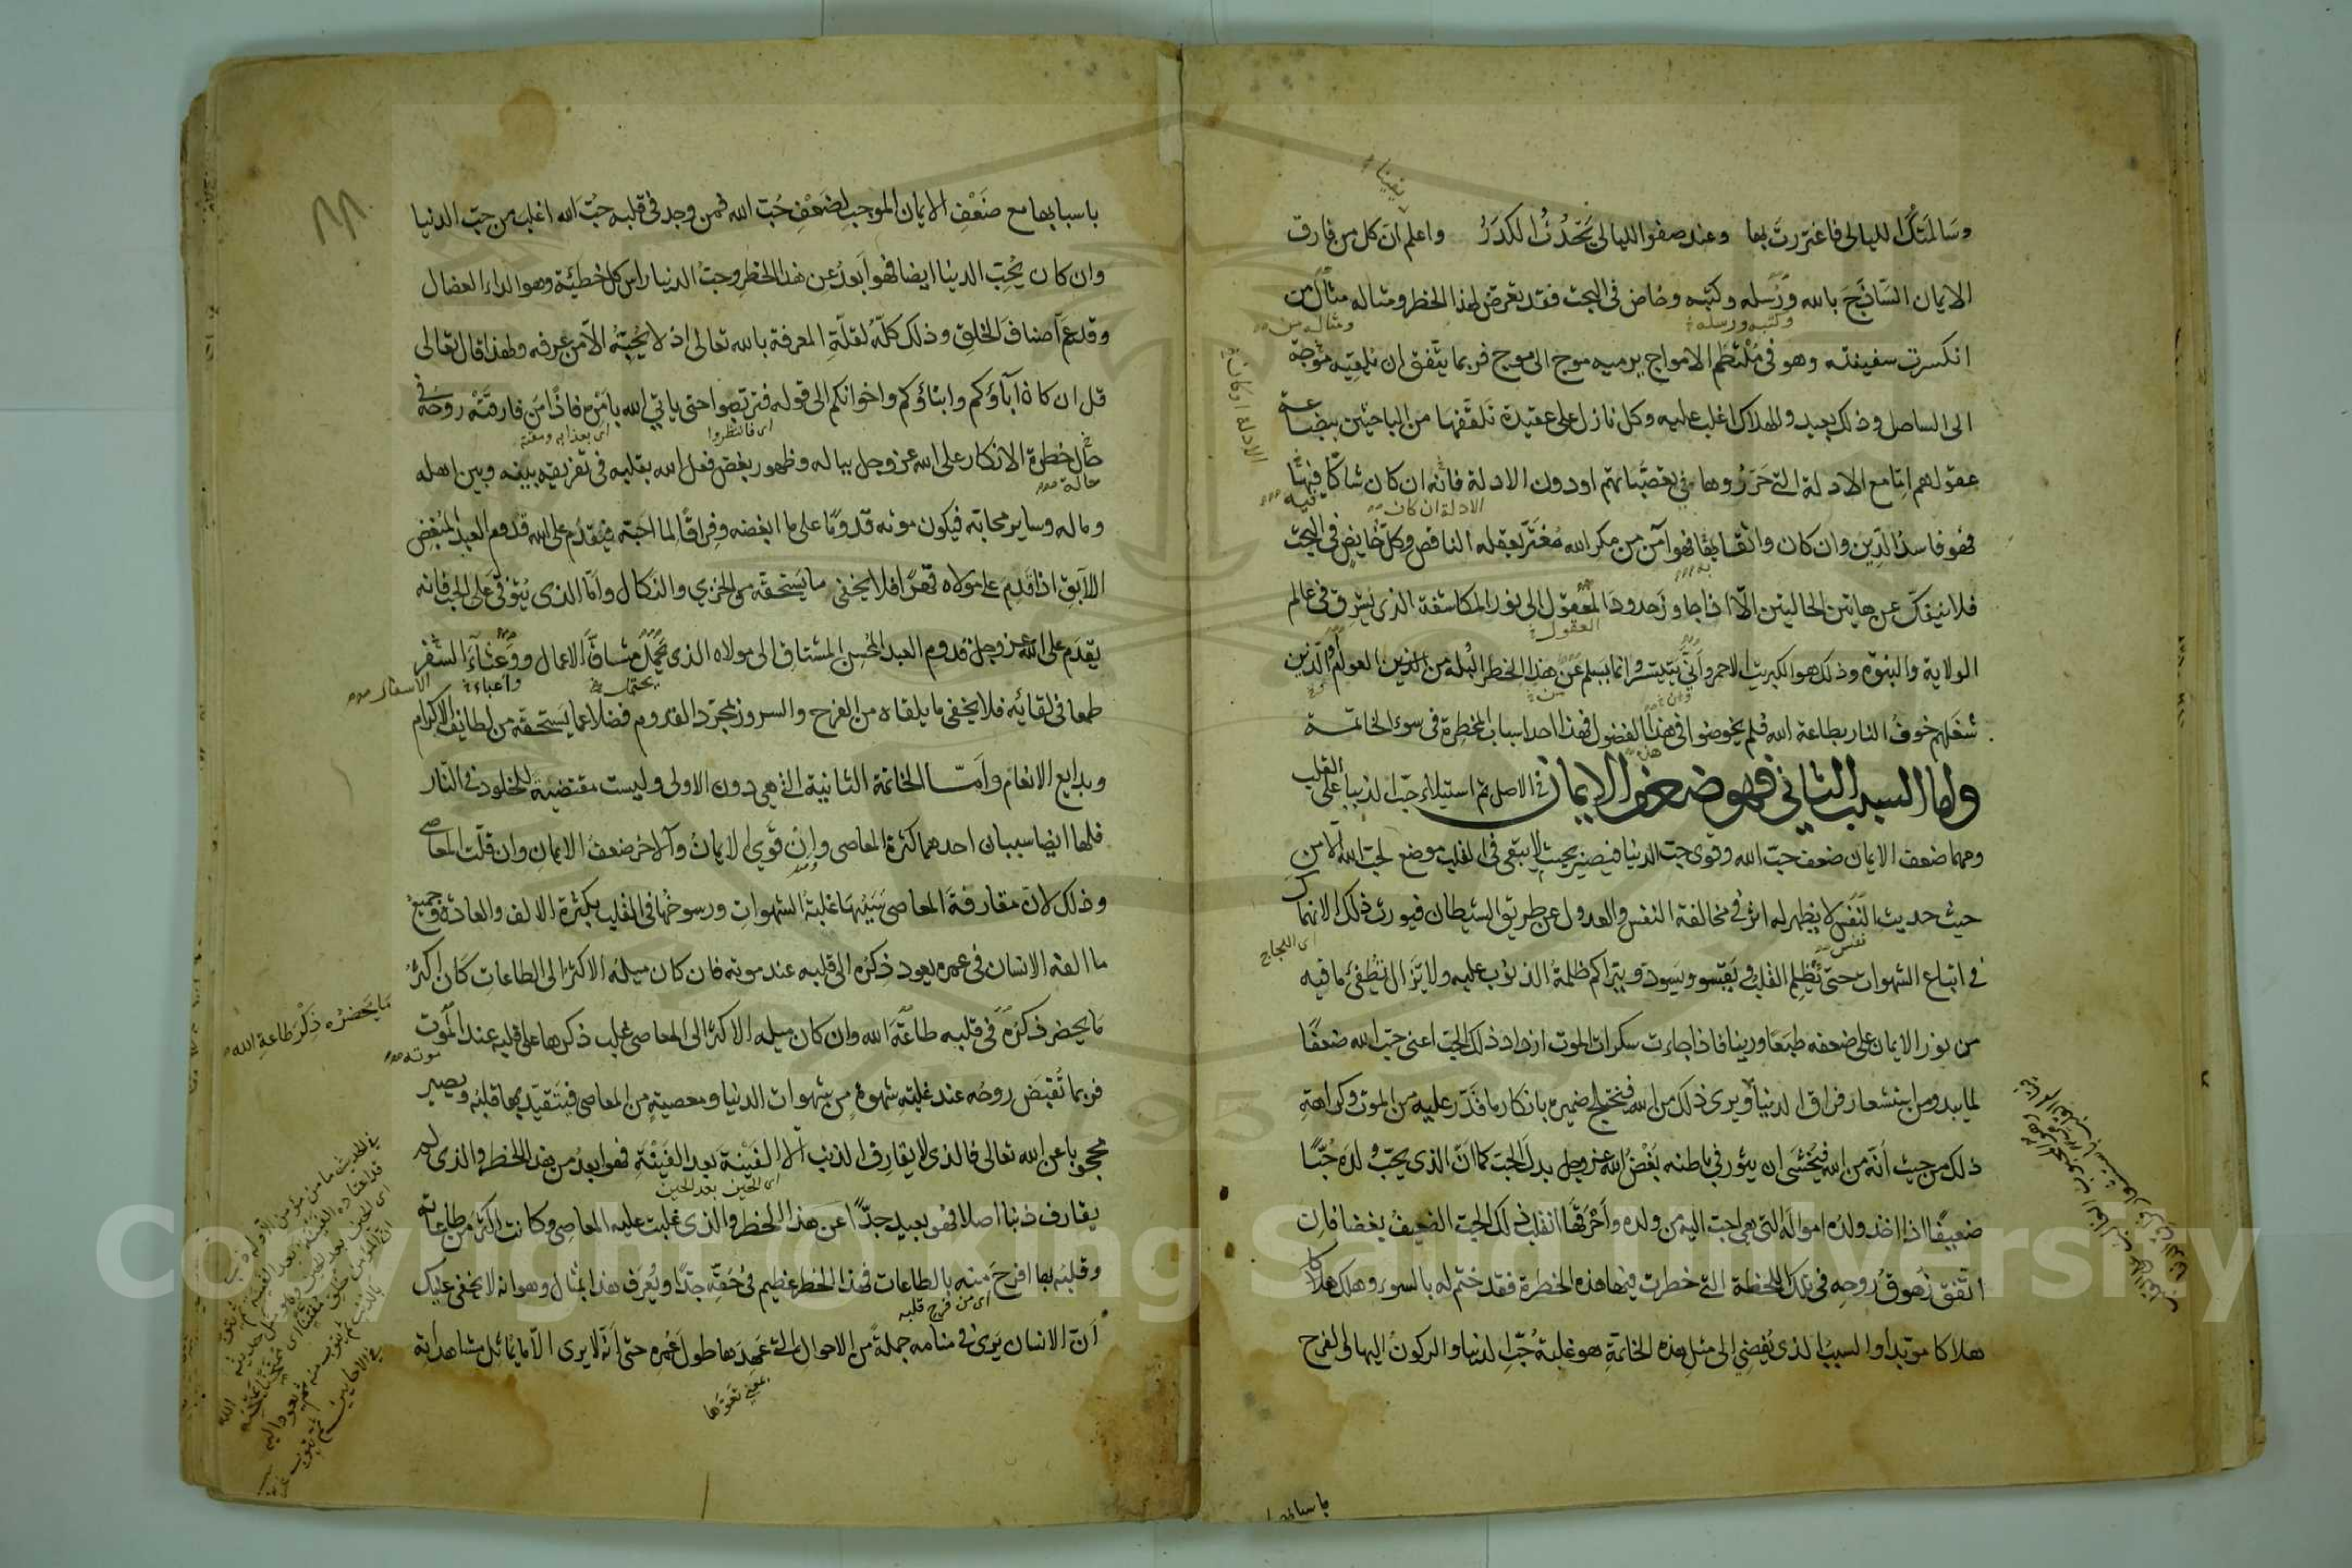 وسالمتك الليالي فاغتررت بها وعند صفو الليالي يحدث الكدر واعلم ان كل من فارق
الايمان الساذج بالله ورسله وكتبه وخاض في البحث فقد تعرض لهذا الخطر ومثاله مثال من
وكتبه ورسله
ومثاله من
انكسرت سفينته وهو في ملتطم الامواج يرميه موج الى موج فربما يتفق ان تلقيه موجة
الى الساحل وذلك بعيد والهلاك اغلب عليه وكل نازل على عقيدة تلقفها من الباحثين ببضاعة
عقولهم اما مع الادلة التي حرروها في تعصباتهم او دون الادلة فانه ان كان شاكا فيها
فيه
الادلة ان كان
فهو فاسد الدين وان كان واثقا بها فهو آمن من مكر الله مغتر بعقله الناقص وكل خايض في البحث
به
فلا ينفك عن هاتين الحالتين الا اذا جاوز حدود المعقول الى نور المكاشفة الذي يشرق في عالم
العقول
الولاية والنبوة وذلك هو الكبريت الاحمر وانى يتيسر وانما يسلم عن هذا الخطر البله من الذين العوام والذين
شغلهم خوف النار بطاعة الله فلم يخوضوا في هذا الفضول فهذا احد اسباب المخطرة في سوء الخاتمة
هذه
واما السبب الثاني فهو ضعف الايمان في الاصل ثم استيلاء حب الدنيا على القلب
ومهما ضعف الايمان ضعف حب الله وقوى حب الدنيا فيصير بحيث لا يبقى في القلب موضع لحب الله الا من
حيث حديث النفس لا يظهر له اثر في مخالفة النفس والعدول عن طريق الشيطان فيورث ذلك الانهماك
نفس
اى اللجاج
في اتباع الشهوات حتى يظلم القلب ويقسو ويسود ويتراكم ظلمة الذنوب عليه ولا يزال تطفئ ما فيه
من نور الايمان على ضعفه طبعا ورينا فاذا جاءت سكرات الموت ازداد ذلك الحب اعنى حب الله ضعفا
لما يبدو من استشعار فراق الدنيا ويرى ذلك من الله فيختلج ضميره بانكار ما قدر عليه من الموت وكراهة
ذلك من حيث انه من الله فيخشى ان يثور في باطنه بغض الله عز وجل بدل الحب كما ان الذي يحب ولده حبا
ضعيفا اذا اخذ ولده امواله التي هي احب اليه من ولده واحرقها انقلب ذلك الحب الضعيف بغضا فان
اتفق زهوق روحه في تلك اللحظة التي خطرت فيها هذه الخطرة فقد ختم له بالسوء وهلك هلاكا
هلاكا مؤبدا والسبب الذي يفضي الى مثل هذه الخاتمة هو غلبة حب الدنيا والركون اليها والفرح
باسبابها مع ضعف الايمان الموجب لضعف حب الله فمن وجد في قلبه حب الله اغلب من حب الدنيا
وان كان يحب الدنيا ايضا فهو ابعد عن هذا الخطر وحب الدنيا راس كل خطيئة وهو الداء العضال
وقد عم اصناف الخلق وذلك كله لقلة المعرفة بالله تعالى اذ لا يحبه الا من عرفه ولهذا قال تعالى
قل ان كان آباؤكم وابناؤكم واخوانكم الى قوله فتربصوا حتى ياتي الله بامره فاذا من فارقته روحه في
اى فانتظروا
حال خطرة الانكار على الله عز وجل بباله وظهور بغض فعل الله بقلبه في تفريقه بينه وبين اهله
حالة
وماله وساير محابه فيكون موته قدوما على ما ابغضه وفراقا لما احبه فيقدم على الله قدوم العبد المبغض
الآبق اذا قدم على مولاه قهرا فلا يخفى ما يستحقه من الخزي والنكال واما الذي يتوفى على الحب فانه
يقدم على الله عز وجل قدوم العبد المحسن المشتاق الى مولاه الذي تحمل مشاق الاعمال ووعثاء السفر
يحتمل
واعباء
الاسفار
طمعا في لقائه فلا يخفى ما يلقاه من الفرح والسرور بمجرد القدوم فضلا عما يستحقه من لطايف الاكرام
وبدايع الانعام واما الخاتمة الثانية التي هي دون الاولى وليست مقتضية للخلود في النار
فلها ايضا سببان احدهما كثرة المعاصى وان قوي الايمان والآخر ضعف الايمان وان قلت المعاصى
وذلك لان مقارفة المعاصى سببها غلبة الشهوات ورسوخها في القلب بكثرة الالف والعادة وجميع
ما الفه الانسان في عمره يعود ذكره الى قلبه عند موته فان كان ميله الاكثر الى الطاعات كان اكثر
ما يحضره ذكر طاعة الله
ما يحضر ذكره في قلبه طاعة الله وان كان ميله الاكثر الى المعاصى غلب ذكرها على قلبه عند الموت
موته
فربما تقبض روحه عند غلبة شهوة من شهوات الدنيا ومعصية من المعاصى فيتقيد بها قلبه ويصير
محجوبا عن الله تعالى فالذي لا يقارف الذنب الا الفينة بعد الفينة فهو ابعد من هذا الخطر والذي لم
اى الحين بعد الحين
يقارف ذنبا اصلا فهو بعيد جدا عن هذا الخطر والذي غلبت عليه المعاصى وكانت اكثر من طاعاته
وقلبه بها افرح منه بالطاعات فهذا الخطر عظيم في حقه جدا ويعرف هذا بمثال وهو انه لا يخفى عليك
اى من فرح قلبه
ان الانسان يرى في منامه جملة من الاحوال التي عهدها طول عمره حتى انه لا يرى الا ما يماثل مشاهداته
Copyright © King Saud University